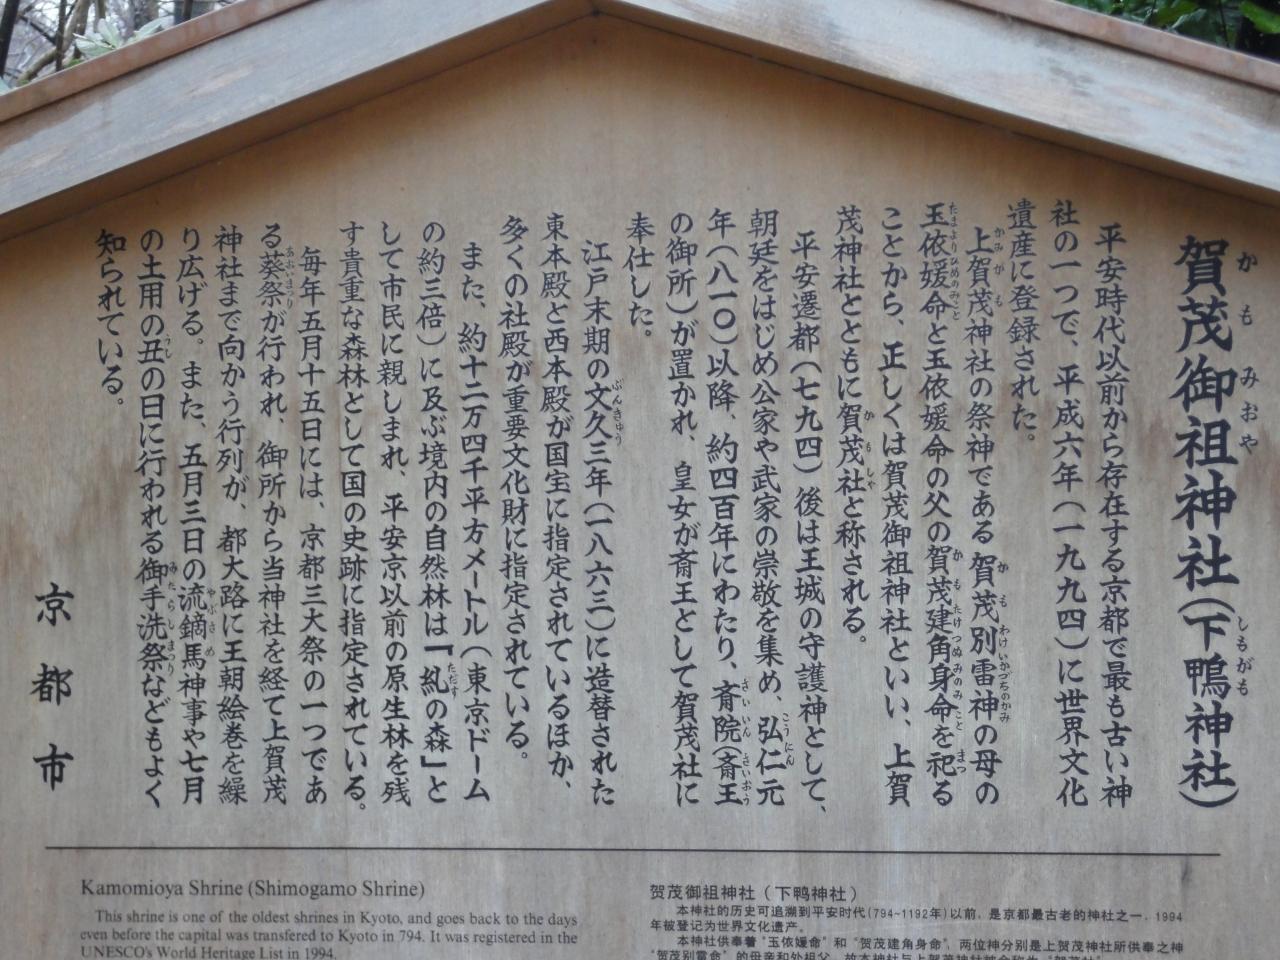 賀茂御祖神社(下鴨神社)
平安時代以前から存在する京都で最も古い神
社の一つで、平成六年(一九九四)に世界文化
遺産に登録された。
上賀茂神社の祭神である賀茂別雷神の母の
玉依媛命と玉依媛命の父の賀茂建角身命を祀る
ことから、正しくは賀茂御祖神社といい、上賀
茂神社とともに賀茂社と称される。
平安遷都(七九四)後は王城の守護神として、
朝廷をはじめ公家や武家の崇敬を集め、弘仁元
年(八一〇)以降、約四百年にわたり、斎院(斎王
の御所)が置かれ、皇女が斎王として賀茂社に
奉仕した。
江戸末期の文久三年(一八六三)に造替された
東本殿と西本殿が国宝に指定されているほか、
多くの社殿が重要文化財に指定されている。
また、約十二万四千平方メートル(東京ドーム
の約三倍)に及ぶ境内の自然林は「糺の森」と
して市民に親しまれ、平安京以前の原生林を残
す貴重な森林として国の史跡に指定されている。
毎年五月十五日には、京都三大祭の一つであ
る葵祭が行われ、御所から当神社を経て上賀茂
神社まで向かう行列が、都大路に王朝絵巻を繰
り広げる。また、五月三日の流鏑馬神事や七月
の土用の丑の日に行われる御手洗祭などもよく
知られている。
京都市
Kamomioya Shrine (Shimogamo Shrine)
This shrine is one of the oldest shrines in Kyoto, and goes back to the days
even before the capital was transfered to Kyoto in 794. It was registered in the
UNESCO's World Heritage List in 1994.
贺茂御祖神社（下鸭神社）
本神社的历史可追溯到平安时代(794~1192年)以前，是京都最古老的神社之一，1994
年被登记为世界文化遗产。
本神社供奉着"玉依媛命"和"贺茂建角身命"，两位神分别是上贺茂神社所供奉之神
"贺茂别雷命"的母亲和外祖父，故本神社与上贺茂神社被合称为"贺茂社"